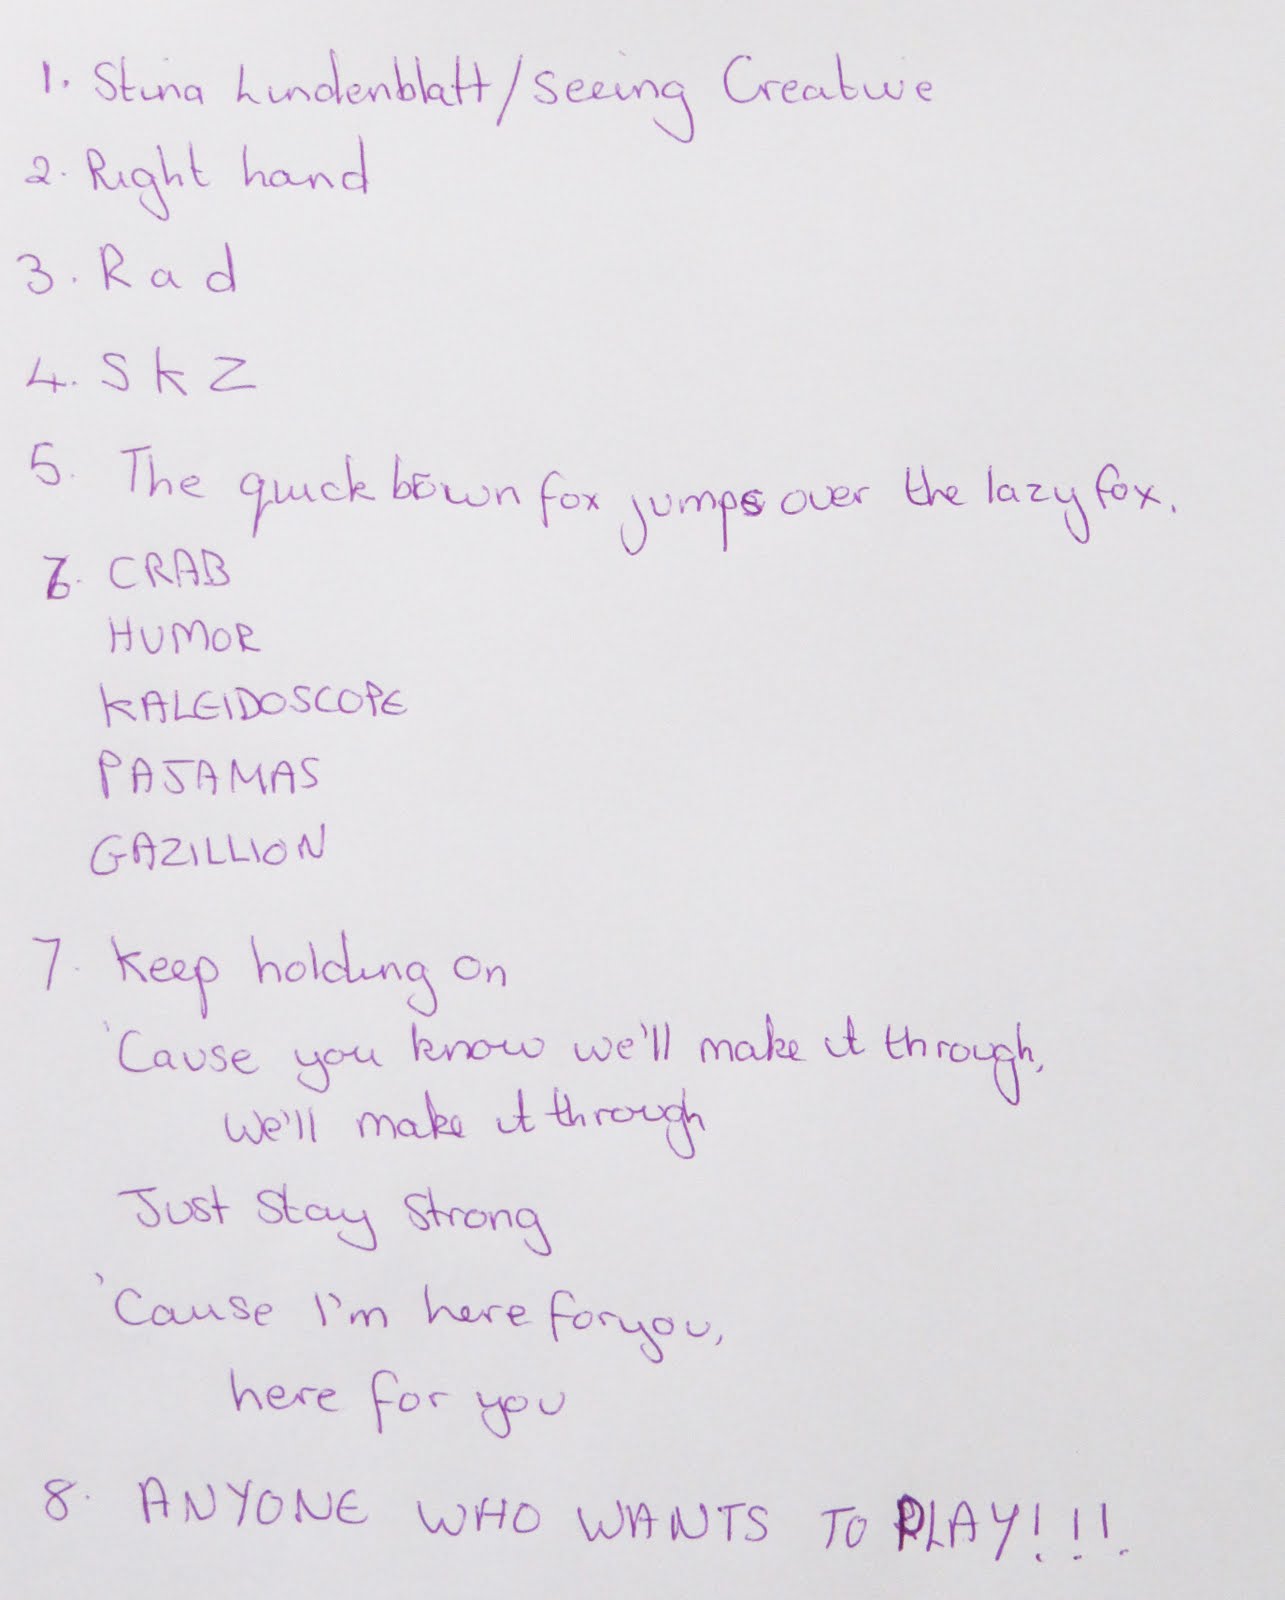 1. Stina Lindenblatt/Seeing Creative
2. Right hand
3. R a d
4. S k Z
5. The quick bown fox jumps over the lazy fox.
6. CRAB
HUMOR
KALEIDOSCOPE
PAJAMAS
GAZILLION
7. Keep holding on
'Cause you know we'll make it through,
We'll make it through
Just stay strong
'Cause I'm here for you,
here for you
8. ANYONE WHO WANTS TO PLAY!!!